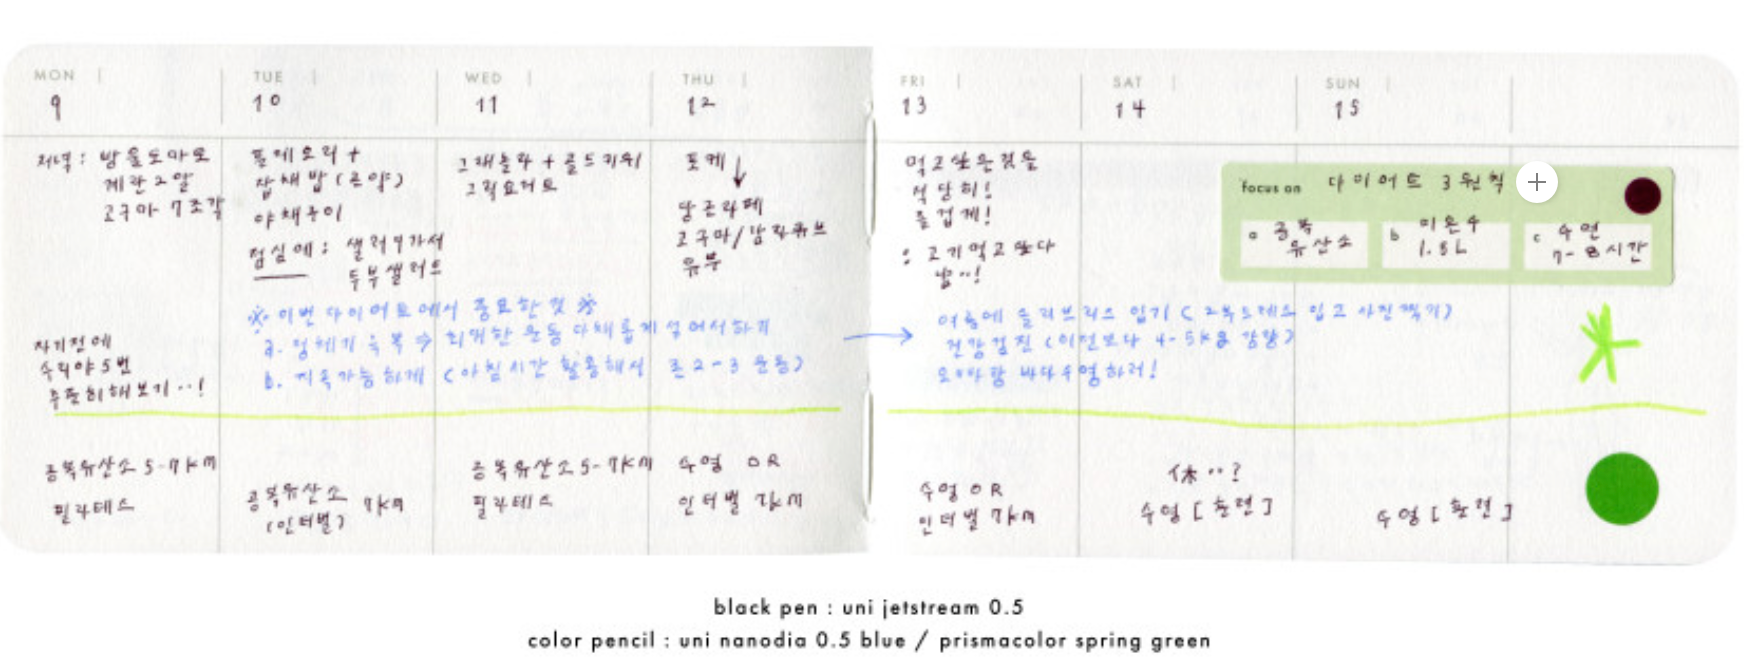 MON
9
TUE
10
WED
11
THU
12
FRI
13
SAT
14
SUN
15
저녁: 방울토마토
계란 2알
고구마 7조각
자기전에
수리야 5번
꾸준히 해보기..!
공복유산소 5-7km
필라테스
잡채밥 (곤약)
야채구이
점심에: 샐러드가서
두부샐러드
공복유산소 7km
(인터벌)
그래놀라 + 골드키위
그릭요거트
공복유산소 5-7km
필라테스
포케↓
당근라페
고구마/감자큐브
유부
수영 OR
인터벌 7km
※ 이번 다이어트에서 중요한 것 ※
a. 정체기 극복 ⇒ 최대한 운동 다채롭게 섞어서 하기
b. 지속가능하게 (아침시간 활용해서 2-3 운동)
→
먹고싶은것을
적당히!
즐겁게!
: 고기먹고싶다
냠..!
여름에 슬리브리스 입기 (입고 사진찍기)
건강검진 (이전보다 4-5kg 감량)
바다수영하러!
수영 OR
인터벌 7km
休..?
수영 [훈련]
수영 [훈련]
focus on 다이어트 3원칙
a 공복
유산소
b 미온수
1.8L
c 수면
7-8시간
black pen : uni jetstream 0.5
color pencil : uni nanodia 0.5 blue / prismacolor spring green